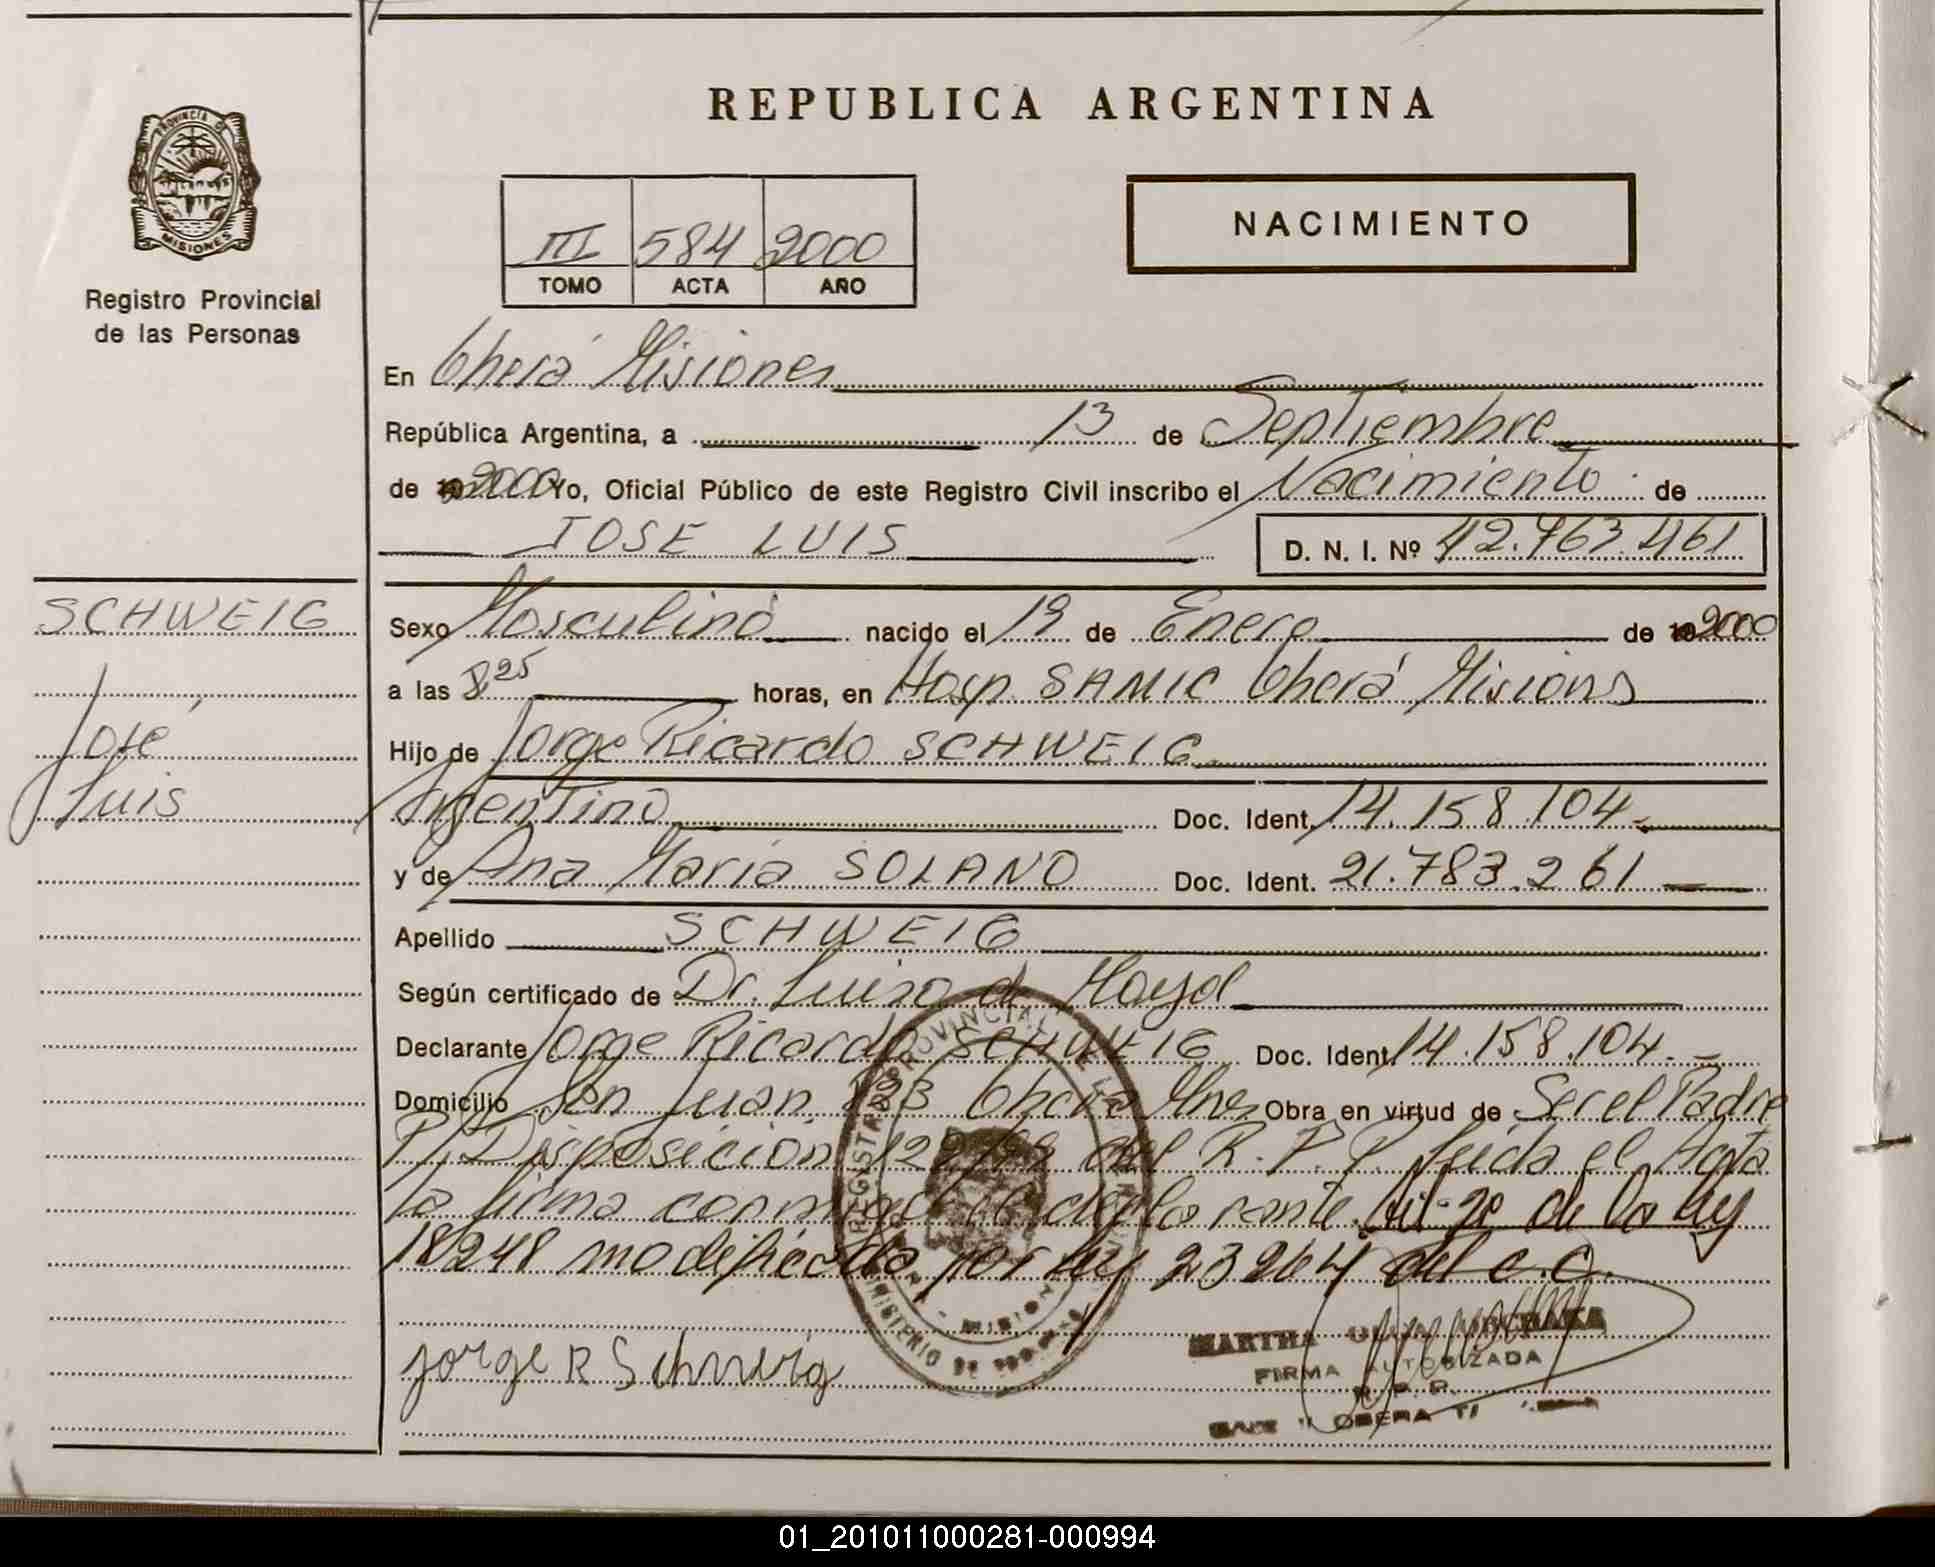 REPUBLICA ARGENTINA
PROVINCIA DE
MISIONES
Registro Provincial
de las Personas
III 584 2000
TOMO ACTA AÑO
NACIMIENTO
En Oberá Misiones
República Argentina, a 13 de Septiembre
de 2000 Yo, Oficial Público de este Registro Civil inscribo el Nacimiento de
JOSE LUIS D. N. I. Nº 42.763.461
SCHWEIG
José
Luis
Sexo Masculino nacido el 19 de Enero de 2000
a las 8,25 horas, en Hosp. SAMIC Oberá Misiones
Hijo de Jorge Ricardo SCHWEIG
Argentino Doc. Ident. 14.158.104
y de Ana María SOLANO Doc. Ident. 21.783.261
Apellido SCHWEIG
Según certificado de Dr. Luisa de
Declarante Jorge Ricardo SCHWEIG Doc. Ident. 14.158.104.
Domicilio San Juan 123 Oberá Mnes Obra en virtud de Ser el Padre
P/Disposición del R.P.P. Leída el Acta
la firma conmigo el declarante. de la ley
18248 modificada por ley 23264 del C.C.
REGISTRO PROVINCIAL DE LAS
MINISTERIO DE
Jorge R Schweig
MARTHA
FIRMA AUTORIZADA
R. P. P.
OBERA
01_201011000281-000994